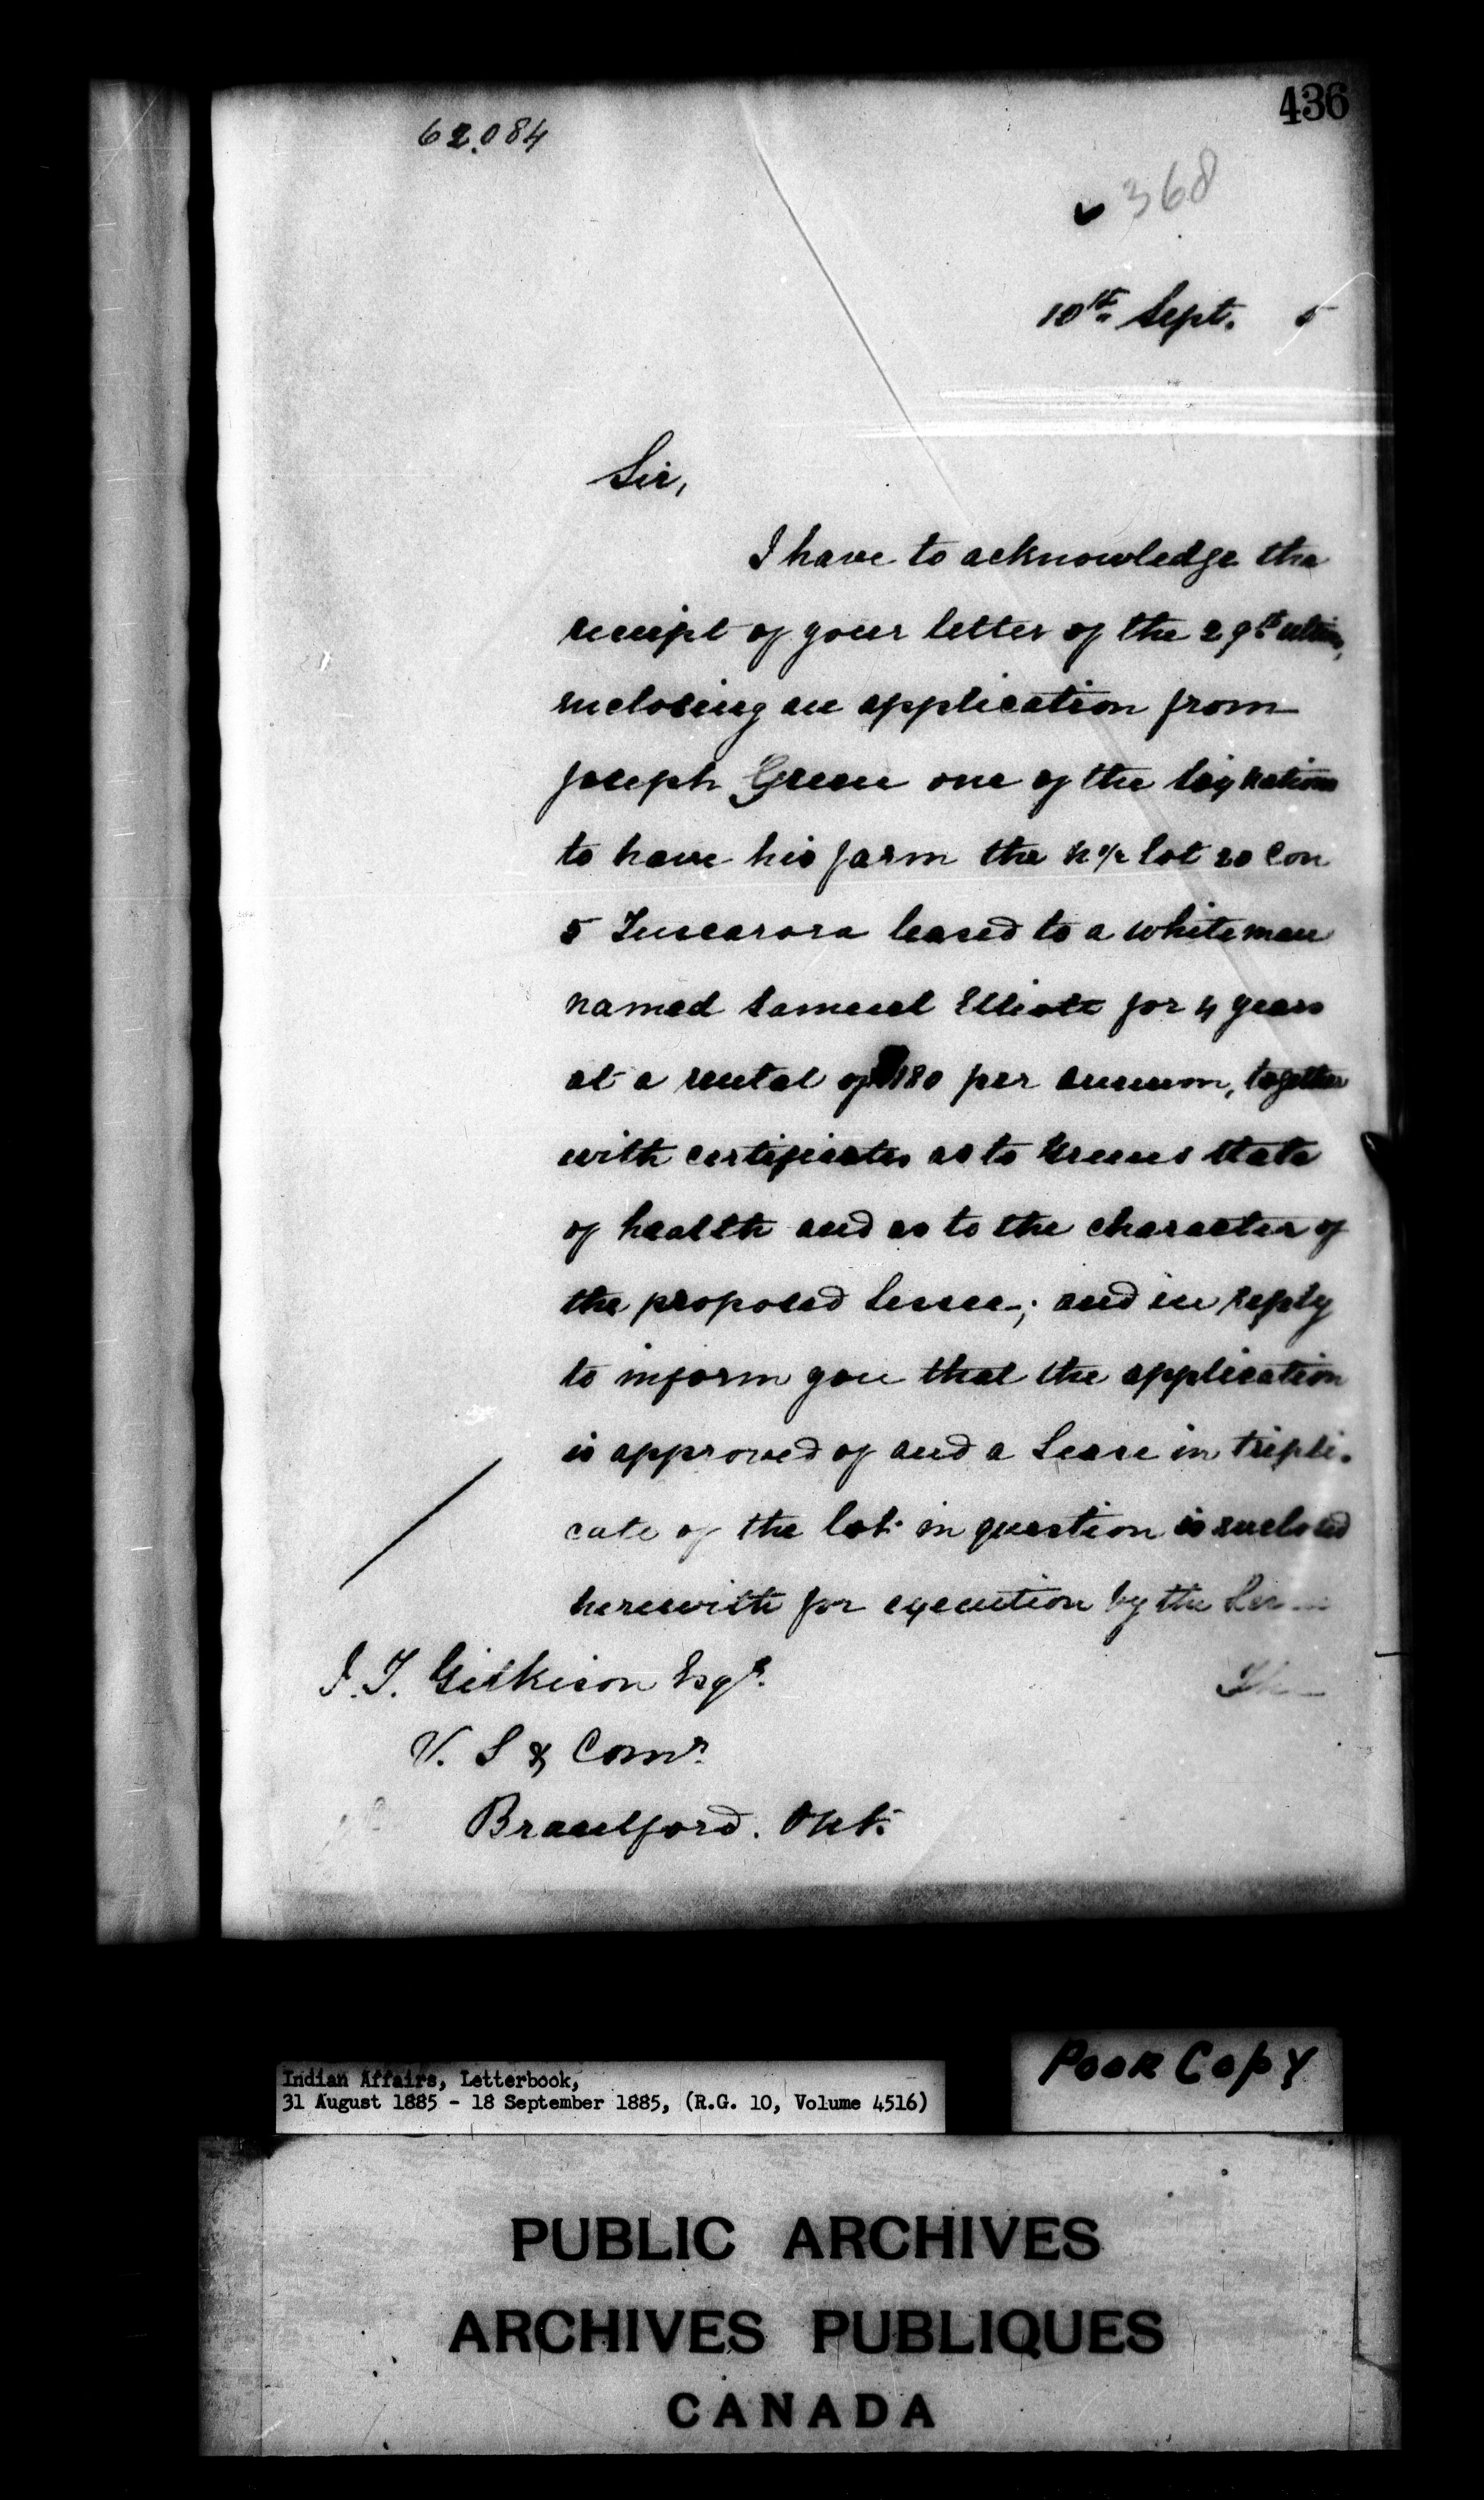 436
62.084
368
10th Sept. 5
Sir,
I have to acknowledge the
receipt of your letter of the 29th ultimo,
enclosing an application from
Joseph Green one of the Six Nations
to have his farm the N ½ lot 20 Con
5 Tuscarora leased to a whiteman
named Samuel Elliott for 4 years
at a rental of $80 per annum, together
with certificates as to Greens state
of health and as to the character of
the proposed Lessee; and in reply
to inform you that the application
is approved of and a Lease in tripli-
cate of the lot in question is enclosed
herewith for execution by the
The
J. T. Gilkison Esqr.
V. S & Comr.
Brantford. Ont.
Poor Copy
Indian Affairs, Letterbook,
31 August 1885 - 18 September 1885, (R.G. 10, Volume 4516)
PUBLIC ARCHIVES
ARCHIVES PUBLIQUES
CANADA